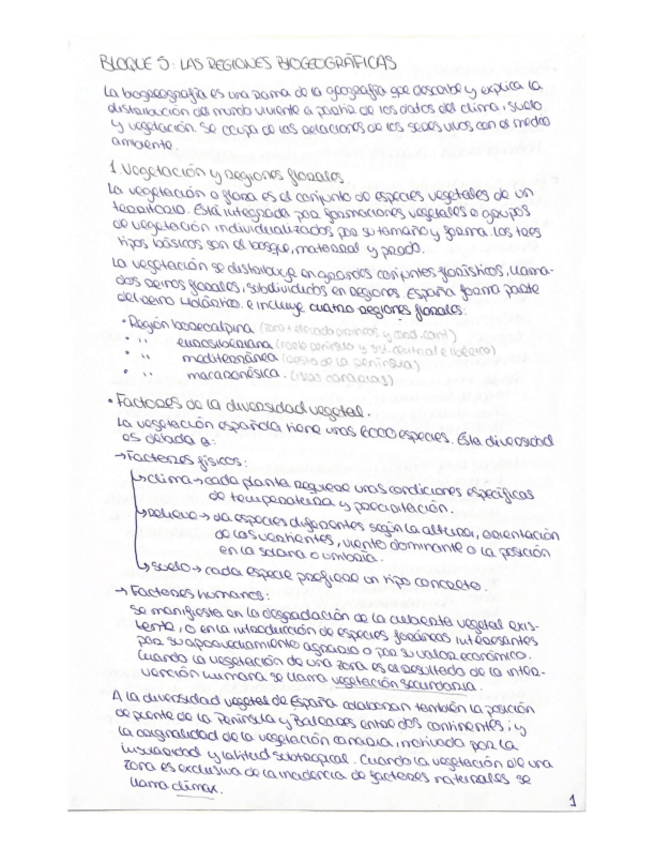 BLOQUE 5: LAS REGIONES BIOGEOGRÁFICAS
La biogeografía es una rama de la geografía que describe y explica la
distribución del mundo viviente a partir de los datos del clima, suelo
y vegetación. Se ocupa de las relaciones de los seres vivos con el medio
ambiente.
1. Vegetación y regiones florales
La vegetación o flora es el conjunto de especies vegetales de un
territorio. Está integrada por formaciones vegetales o grupos
de vegetación individualizados por su tamaño y forma. Los tres
tipos básicos son el bosque, matorral y prado.
La vegetación se distribuye en grandes conjuntos florísticos, llama-
dos reinos florales, subdivididos en regiones. España forma parte
del reino Holártico. e incluye cuatro regiones florales:
• Región boreoalpina (zona + elevada pirineos y cord. cant)
• " eurosiberiana
• " mediterránea (resto de la península)
• " macaronésica. (islas canarias)
• Factores de la diversidad vegetal.
La vegetación española tiene unas 6000 especies. Esta diversidad
es debida a:
→ Factores físicos:
↳ clima → cada planta requiere unas condiciones específicas
de temperatura y precipitación.
↳ relieve → da especies diferentes según la altura, orientación
de las vertientes, viento dominante o la posición
en la solana o umbría.
↳ suelo → cada especie prefiere un tipo concreto.
→ Factores humanos:
Se manifiesta en la degradación de la cubierta vegetal exis-
tente, o en la introducción de especies foráneas interesantes
por su aprovechamiento agrario o por su valor económico.
Cuando la vegetación de una zona es el resultado de la inter-
vención humana se llama vegetación secundaria.
A la diversidad vegetal de España colaboran también la posición
de puente de la Península y Baleares entre dos continentes; y
la originalidad de la vegetación canaria, motivada por la
insularidad y latitud subtropical. Cuando la vegetación de una
zona es exclusiva de la de factores naturales se
llama clímax.
1